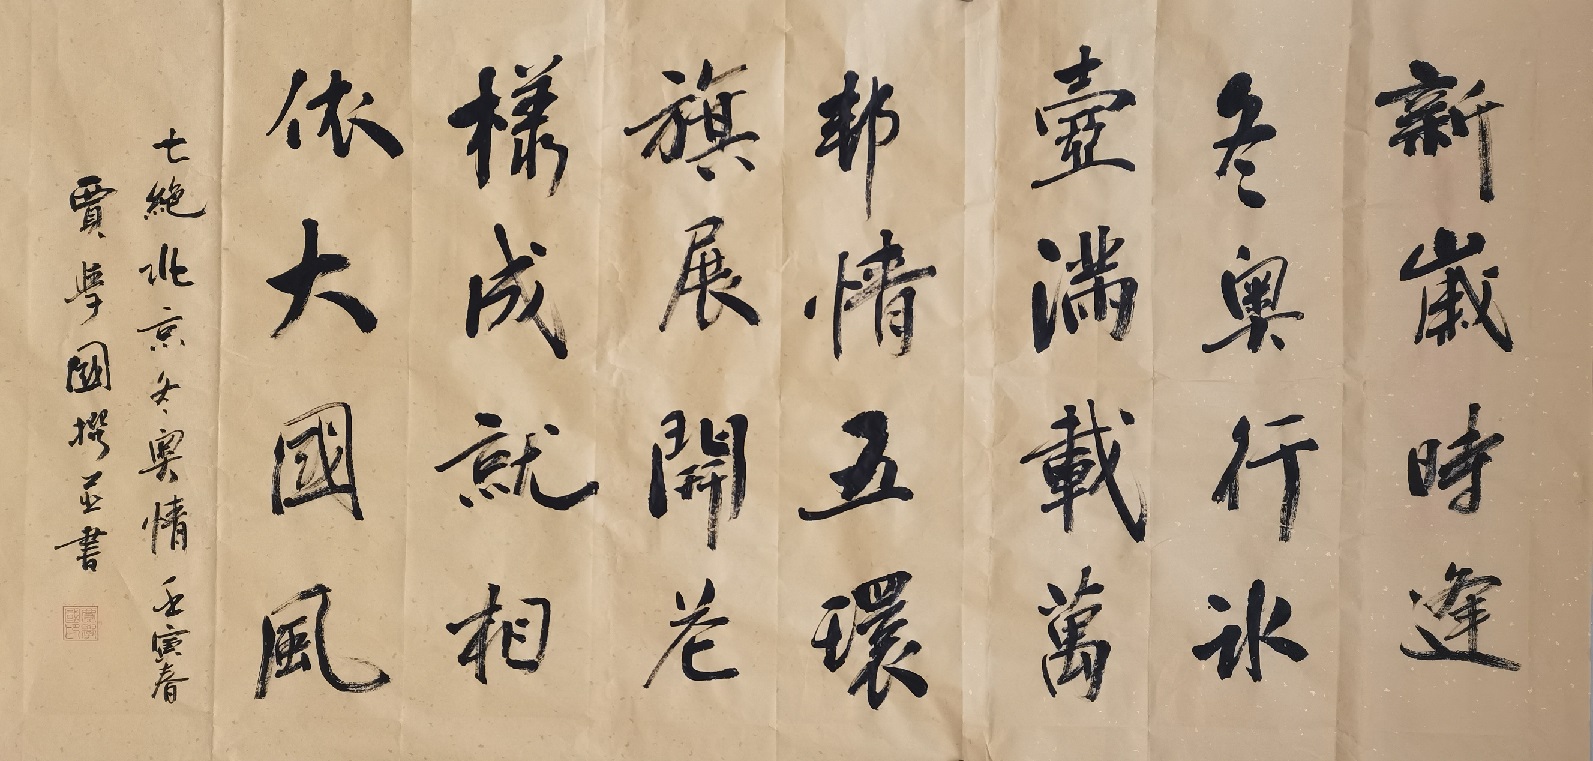 新嵗時逢
冬奥行冰
壺滿載萬
邦情五環
旗展開花
樣成就相
依大國風
七絶北京冬奥情壬寅春
賈學國撰並書